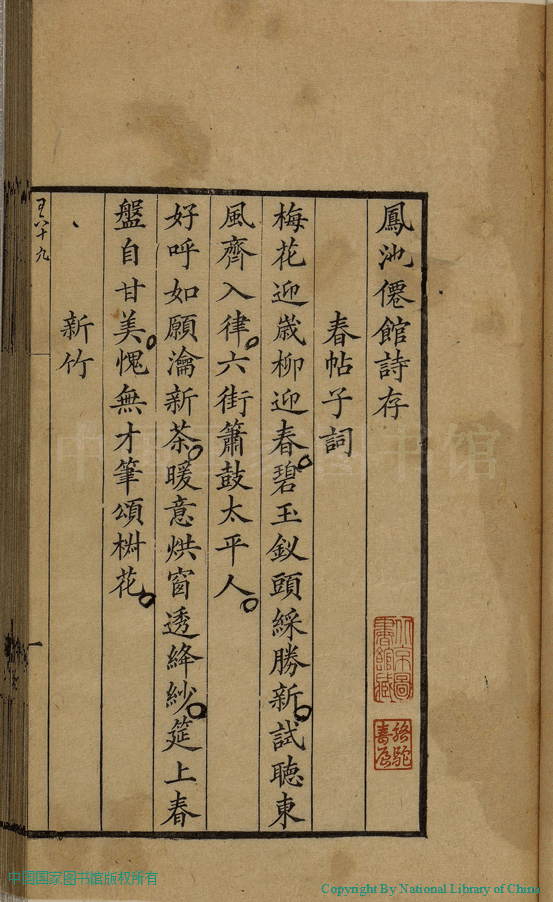 鳳池僊館詩存
春帖子詞
梅花迎歲柳迎春碧玉釵頭綵勝新試聽東
風齊入律六街簫鼓太平人
好呼如願瀹新茶暖意烘窗透絳紗筵上春
盤自甘美愧無才筆頌椒花
新竹
一
北京圖書館藏
中国国家图书馆
中国国家图书馆版权所有
Copyright By National Library of China